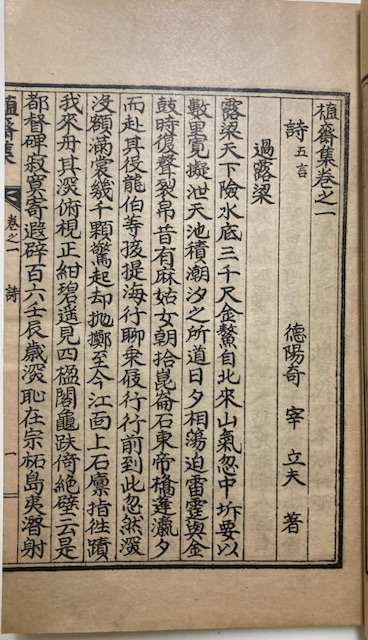 植齋集卷之一
德陽奇 宰 立夫 著
詩 五言
過露梁
露梁天下險水底三千尺金鰲自北來山氣忽中坼要以
數里寬擬泄天池積潮汐之所道日夕相蕩迫雷霆與金
鼓時復聲裂帛昔有麻姑女朝拾崑崙石東帝橋蓬瀛夕
而赴其役龍伯等孩提海行聊乘屐行行前到此忽然深
沒額滿裳幾千顆驚起却抛擲至今江面上石廪指往蹟
我來舟其深俯視正紺碧遥見四楹閣龜趺倚絶壁云是
都督碑寂寞寄遐辟百六壬辰歲深恥在宗祏島夷潛射
植齋集
卷之一
詩
一